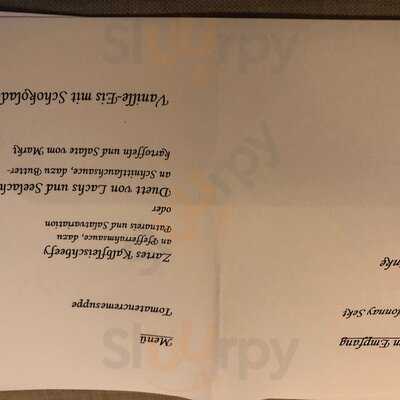 Menü
Tomatencremesuppe
Zartes Kalbfleischbeefy
an Pfefferrahmsauce, dazu
Patnareis und Salatvariation
oder
Duett von Lachs und Seelach
an Schnittlauchsauce, dazu Butter-
Kartoffeln und Salate vom Markt
Vanille-Eis mit Schokolad
n Empfang
donnay Sekt
nke
Slurrpy
Slurrpy
Slurrpy